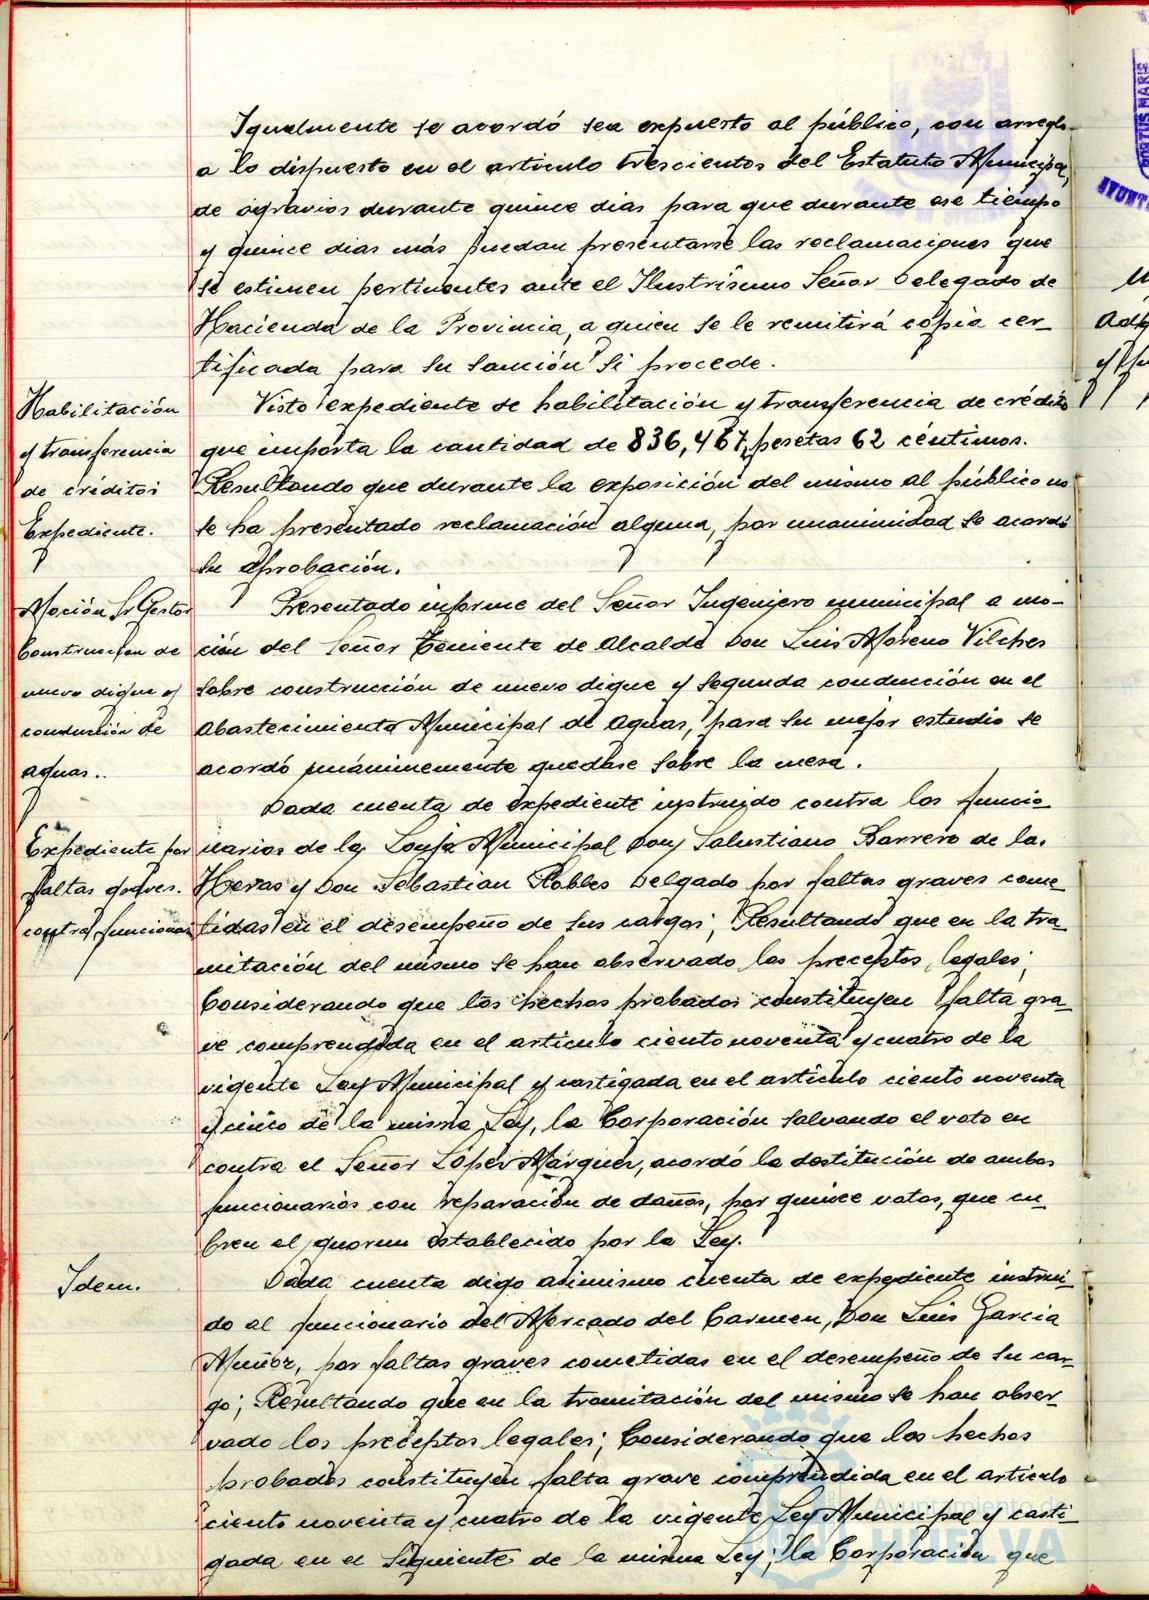 Igualmente se acordó sea expuesto al público, con arreglo
a lo dispuesto en el articulo trescientos del Estatuto Municipal,
de agravios durante quince dias para que durante ese tiempo
y quince dias más puedan presentarse las reclamaciones que
se estimen pertinentes ante el Ilustrísimo Señor Delegado de
Hacienda de la Provincia, a quien se le remitirá copia cer-
tificada para su sanción si procede.
Habilitación
y transferencia
de créditos
Expediente.
Visto expediente de habilitación y transferencia de crédito
que importa la cantidad de 836,467, pesetas 62 céntimos.
Resultando que durante la exposición del mismo al público no
se ha presentado reclamación alguna, por unanimidad se acordó
su aprobación.
Moción Sr Gestor
Construccion de
nuevo dique y
conducción de
aguas..
Presentado informe del Señor Ingeniero municipal a mo-
ción del Señor Teniente de Alcalde Don Luis Moreno Vilches
sobre construcción de nuevo dique y segunda conducción en el
Abastecimiento Municipal de Aguas, para su mejor estudio se
acordó unánimemente quedase sobre la mesa.
Expediente por
faltas graves.
contra funcionar
Dada cuenta de expediente instruido contra los funcio-
narios de la Lonja Municipal Don Salustiano Barrero de la.
Heras y Don Sebastian Robles Delgado por faltas graves come-
tidas en el desempeño de sus cargos; Resultando que en la tra-
mitación del mismo se han observado los preceptos legales;
Considerando que los hechos probados constituyen falta gra-
ve comprendida en el articulo ciento noventa y cuatro de la
vigente Ley Municipal y castigada en el articulo ciento noventa
y cinco de la misma Ley, la Corporación salvando el voto en
contra el Señor López Márquez, acordó la destitución de ambos
funcionarios con reparación de daños, por quince votos, que cu-
bren el quorum establecido por la Ley.
Idem.
Dada cuenta digo asimismo cuenta de expediente instrui-
do al funcionario del Mercado del Carmen, Don Luis Garcia
Muñoz, por faltas graves cometidas en el desempeño de su car-
go; Resultando que en la tramitación del mismo se han obser-
vado los preceptos legales; Considerando que los hechos
probados constituyen falta grave comprendida en el articulo
ciento noventa y cuatro de la vigente Ley Municipal y casti-
gada en el siguiente de la misma Ley; la Corporación que
Ayuntamiento de
HUELVA